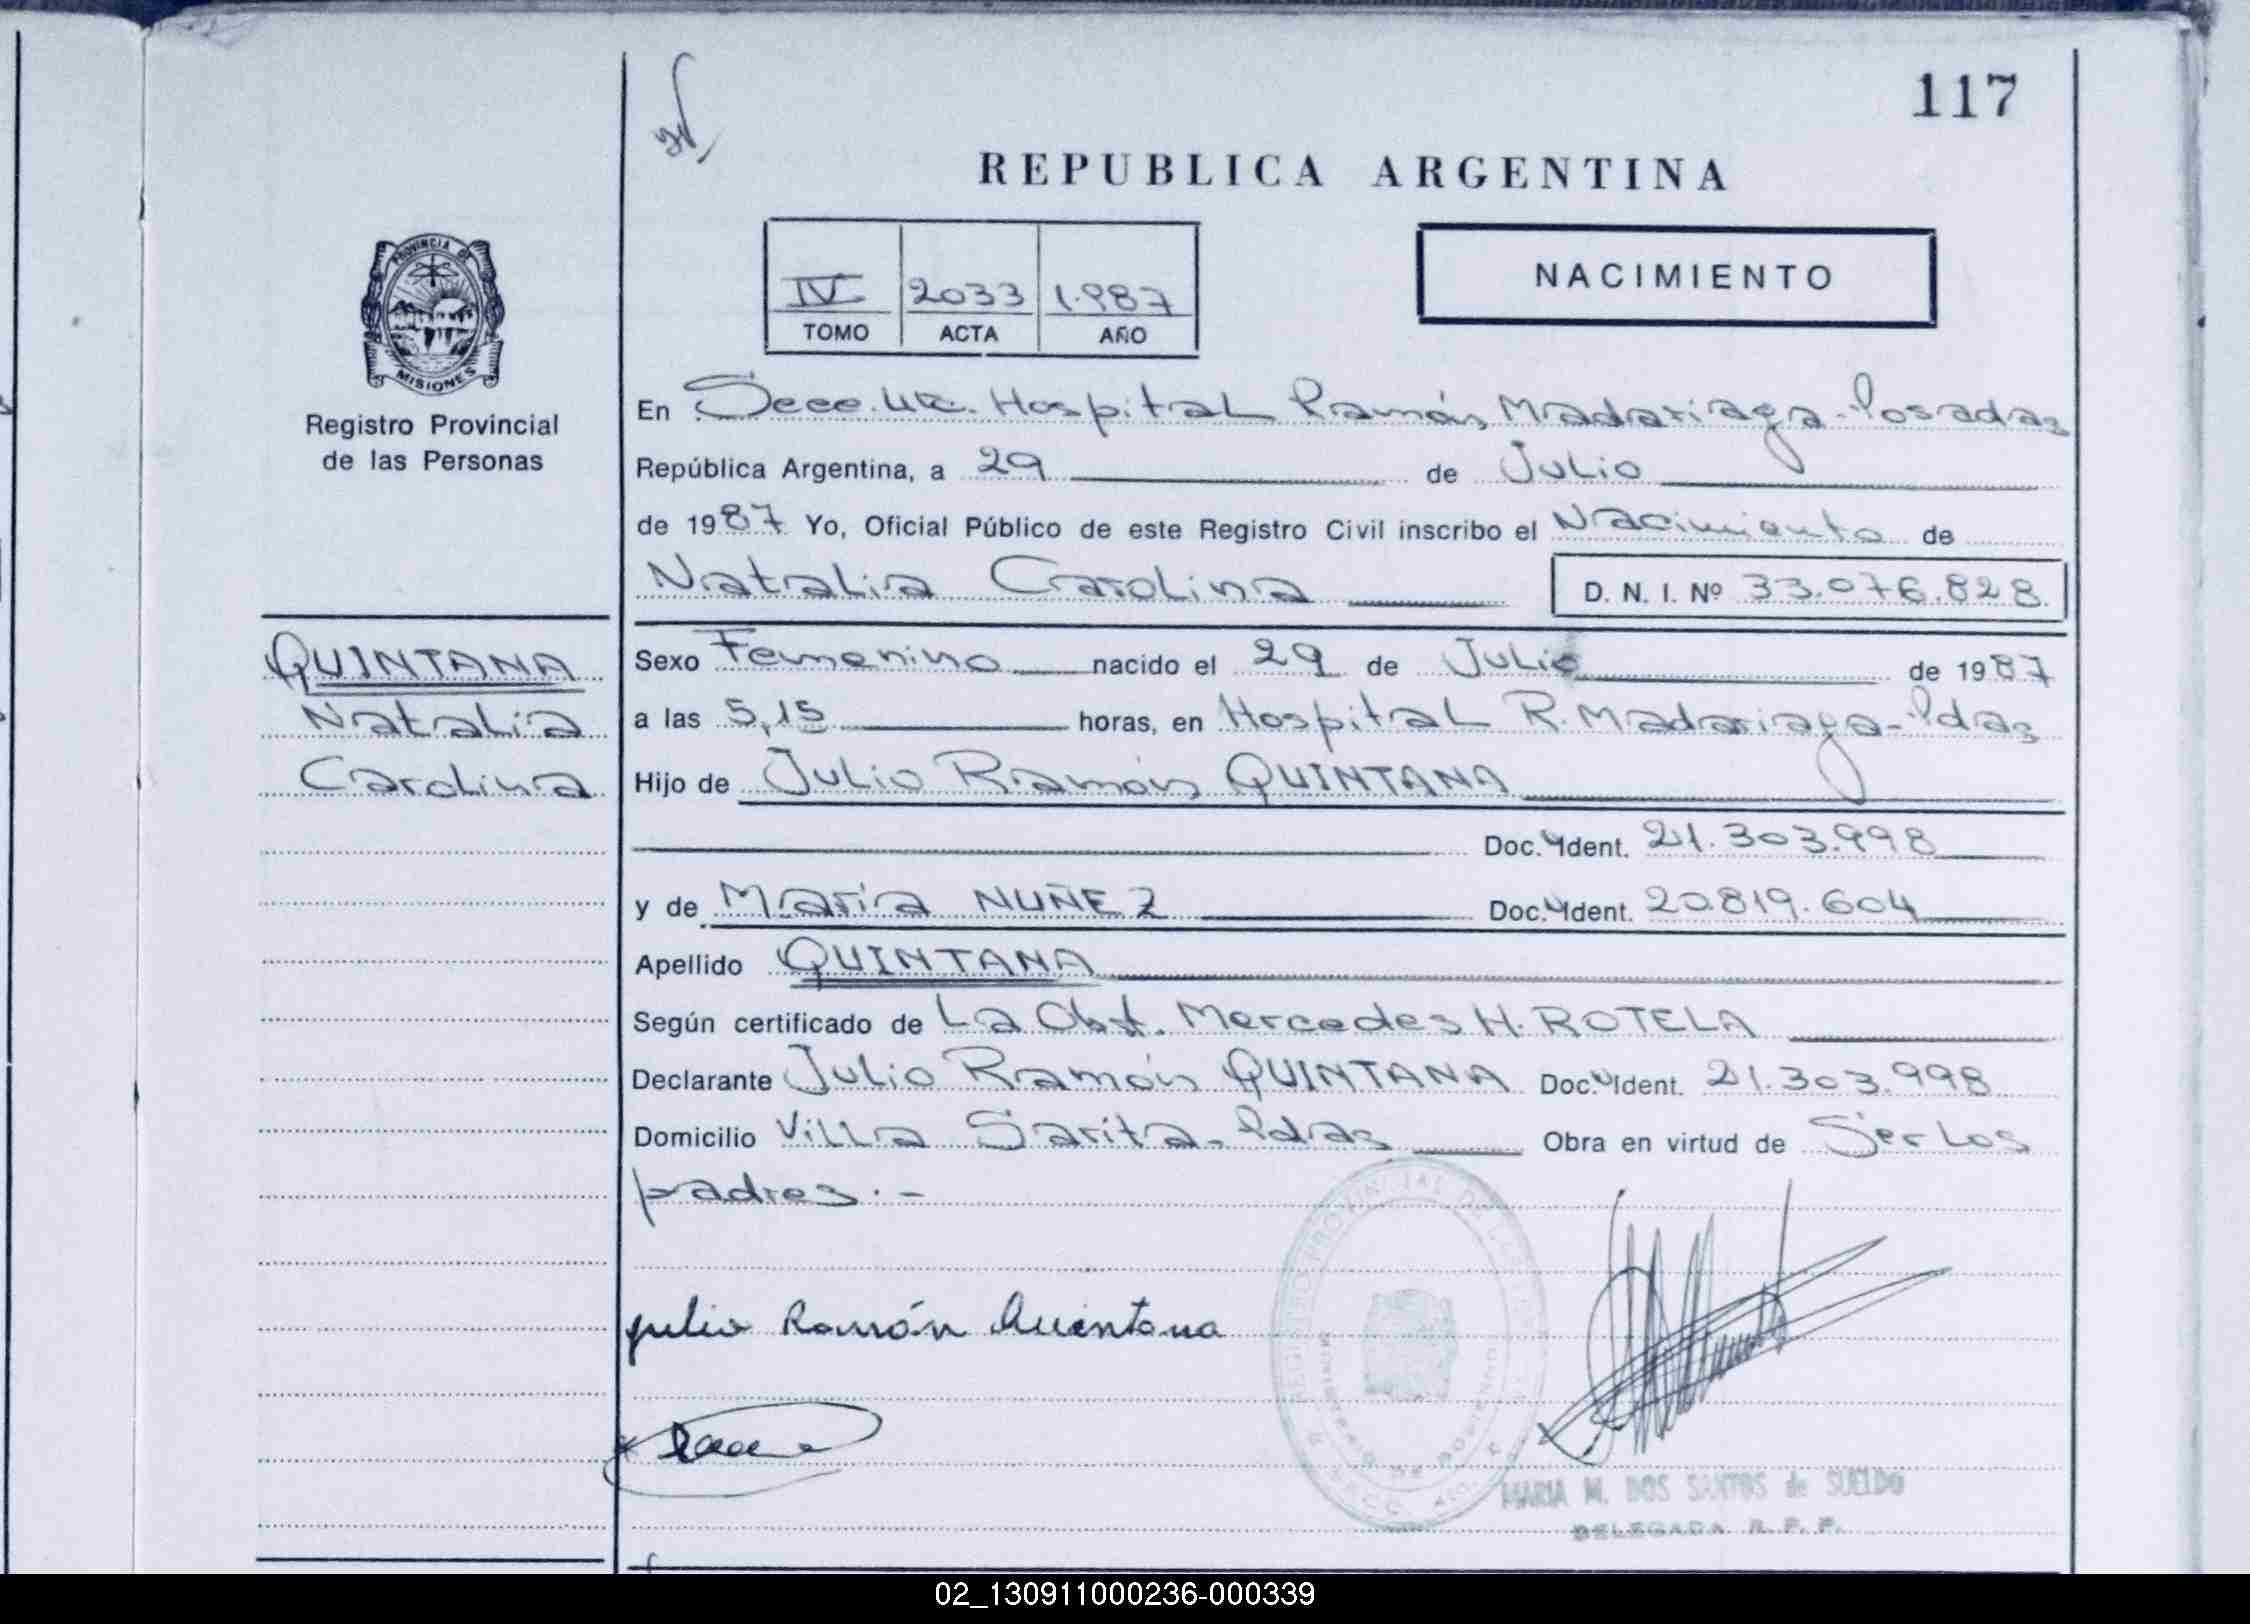 117
REPUBLICA ARGENTINA
PROVINCIA DE
MISIONES
Registro Provincial
de las Personas
IV 2033 1.987
TOMO ACTA AÑO
NACIMIENTO
En Secc. 4ta. Hospital Ramón Madariaga - Posadas
República Argentina, a 29 de Julio
de 1987 Yo, Oficial Público de este Registro Civil inscribo el Nacimiento de
Natalia Carolina D. N. I. Nº 33.076.828
QUINTANA
Natalia
Carolina
Sexo Femenino nacido el 29 de Julio de 1987
a las 5,15 horas, en Hospital R. Madariaga - Pdas
Hijo de Julio Ramón QUINTANA
Doc. Ident. 21.303.998
y de María NUÑEZ Doc. Ident. 20.819.604
Apellido QUINTANA
Según certificado de La Obst. Mercedes H. ROTELA
Declarante Julio Ramón QUINTANA Doc. Ident. 21.303.998
Domicilio Villa Sarita - Pdas Obra en virtud de Ser los
padres. -
Julio Ramón Quintana
MARIA M. DOS SANTOS de SUELDO
DELEGADA R. P. P.
02_130911000236-000339